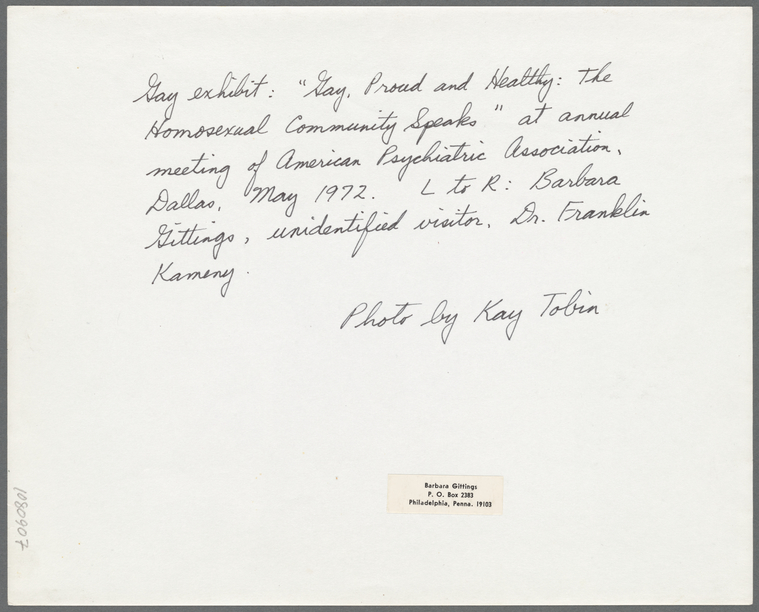 Gay exhibit: "Gay, Proud and Healthy: The
Homosexual Community Speaks" at annual
meeting of American Psychiatric Association,
Dallas, May 1972. L to R: Barbara
Gittings, unidentified visitor, Dr. Franklin
Kameny.
Photo by Kay Tobin
Barbara Gittings
P. O. Box 2383
Philadelphia, Penna. 19103
1080907